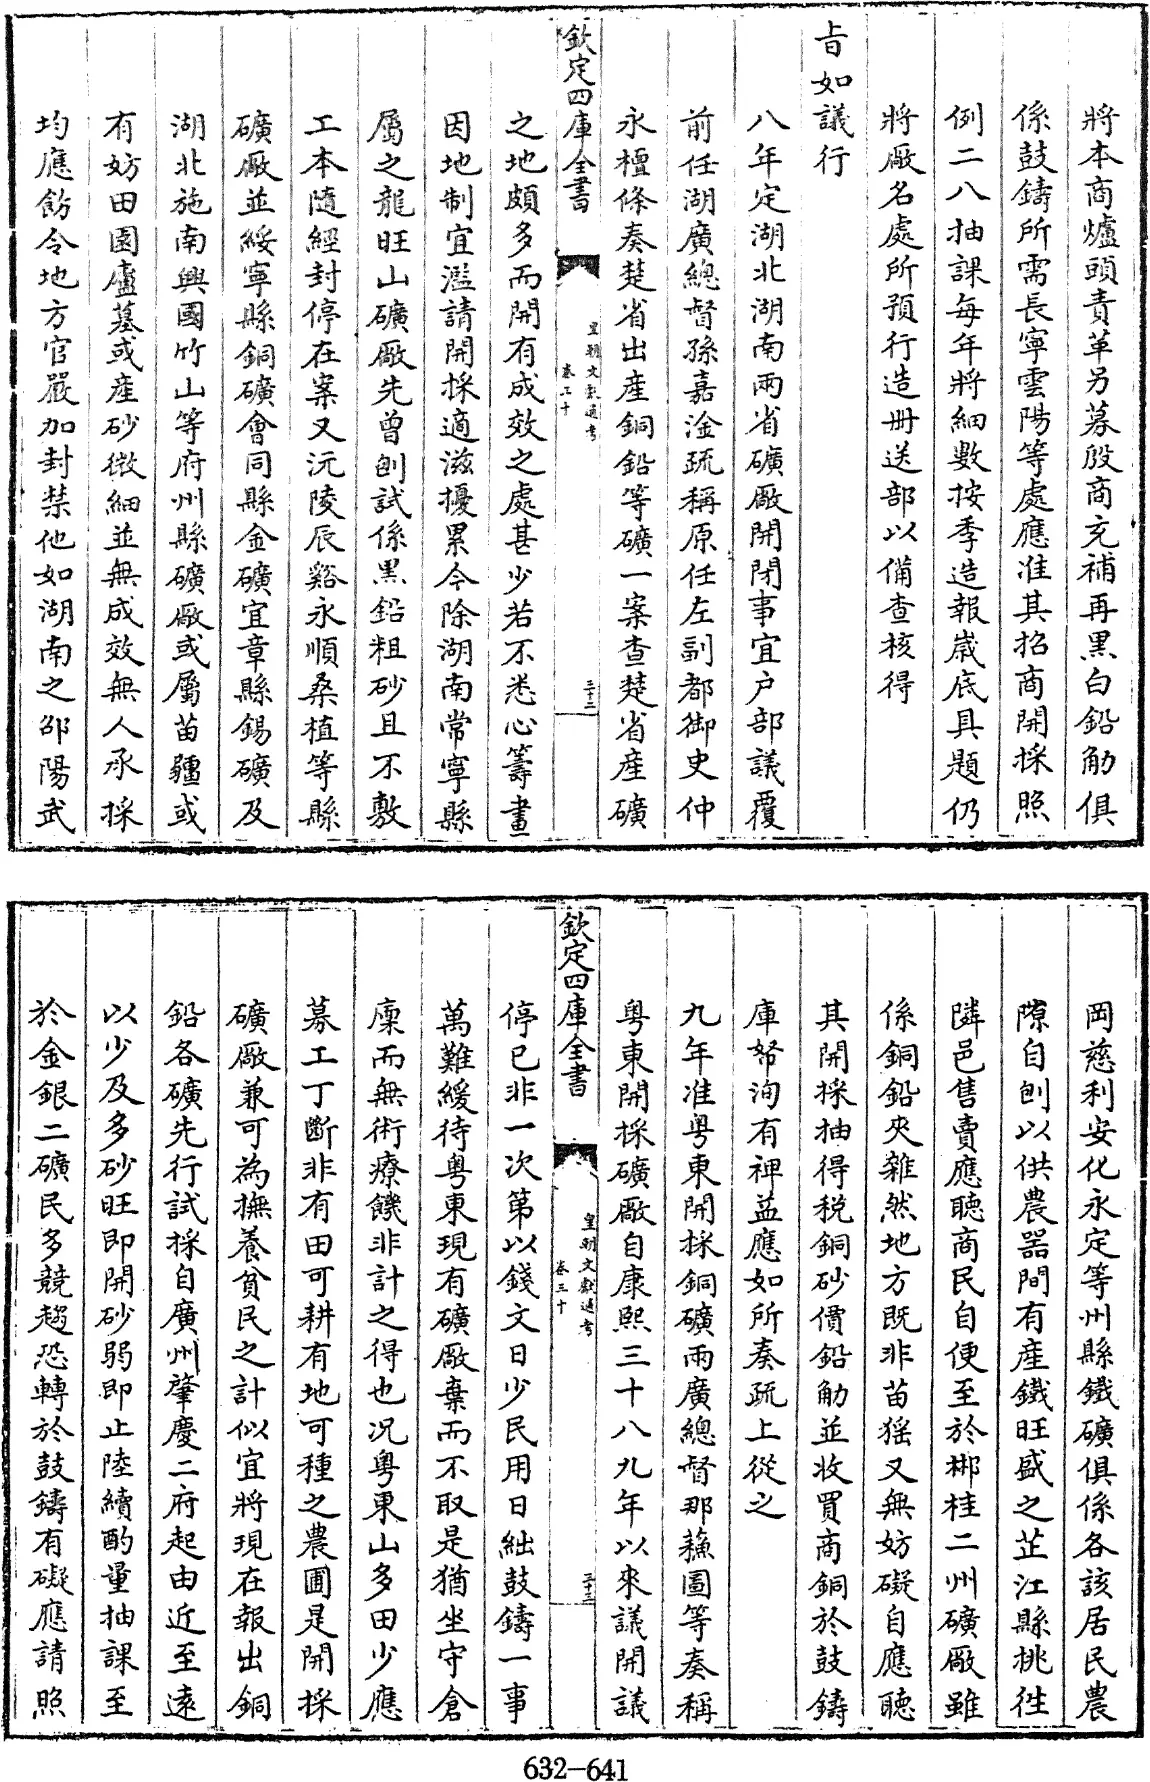 將本商爐頭責革另募殷商充補再黑白鉛觔俱
係鼓鑄所需長寧雲陽等處應准其招商開採照
例二八抽課每年將細數按季造報嵗底具題仍
將廠名處所預行造册送部以備查核得
㫖如議行
八年定湖北湖南兩省礦廠開閉事宜户部議覆
前任湖廣總督孫嘉淦疏稱原任左副都御史仲
永檀條奏楚省出産銅鉛等礦一案查楚省産礦
欽定四庫全書
皇朝文獻通考
卷三十
三十二
之地頗多而開有成效之處甚少若不悉心籌畫
因地制宜濫請開採適滋擾累今除湖南常寧縣
屬之龍旺山礦廠先曾刨試係黑鉛粗砂且不敷
工本隨經封停在案又沅陵辰谿永順桑植等縣
礦廠並綏寧縣銅礦會同縣金礦宜章縣錫礦及
湖北施南興國竹山等府州縣礦廠或屬苗疆或
有妨田園廬墓或産砂微細並無成效無人承採
均應飭令地方官嚴加封禁他如湖南之邵陽武
岡慈利安化永定等州縣鐵礦俱係各該居民農
隙自刨以供農器間有産鐵旺盛之芷江縣挑徃
隣邑售賣應聽商民自便至於郴桂二州礦廠雖
係銅鉛夾雜然地方既非苗猺又無妨礙自應聽
其開採抽得税銅砂價鉛觔並收買商銅於鼓鑄
庫帑洵有裨益應如所奏疏上從之
九年准粤東開採銅礦兩廣總督那蘓圖等奏稱
粤東開採礦廠自康熙三十八九年以來議開議
欽定四庫全書
皇朝文獻通考
卷三十
三十三
停已非一次第以錢文日少民用日絀鼓鑄一事
萬難緩待粤東現有礦廠棄而不取是猶坐守倉
廩而無術療饑非計之得也况粤東山多田少應
募工丁斷非有田可耕有地可種之農圃是開採
礦廠兼可為撫養貧民之計似宜將現在報出銅
鉛各礦先行試採自廣州肇慶二府起由近至逺
以少及多砂旺即開砂弱即止陸續酌量抽課至
於金銀二礦民多競趨恐轉於鼓鑄有礙應請照
632—641